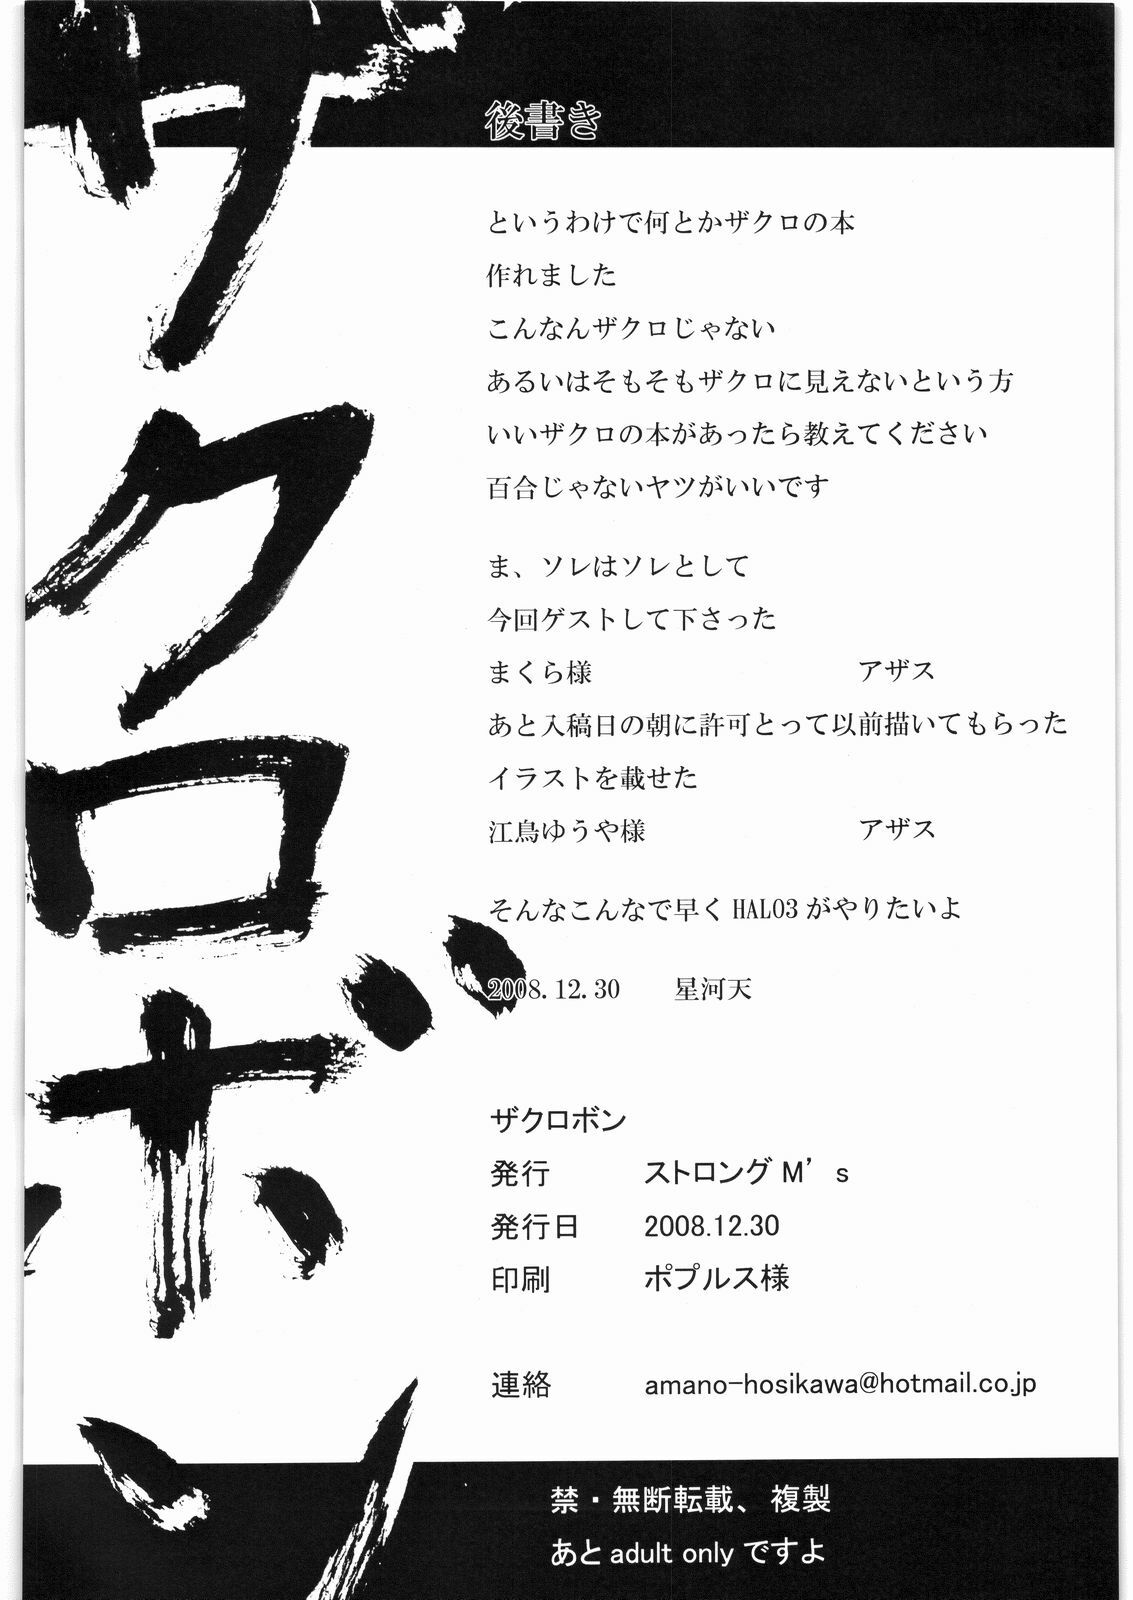 ザクロボン
後書き
というわけで何とかザクロの本
作れました
こんなんザクロじゃない
あるいはそもそもザクロに見えないという方
いいザクロの本があったら教えてください
百合じゃないヤツがいいです
ま、ソレはソレとして
今回ゲストして下さった
まくら様 アザス
あと入稿日の朝に許可とって以前描いてもらった
イラストを載せた
江鳥ゆうや様 アザス
そんなこんなで早く HALO3 がやりたいよ
2008.12.30 星河天
ザクロボン
発行 ストロング M’s
発行日 2008.12.30
印刷 ポプルス様
連絡 amano-hosikawa@hotmail.co.jp
禁・無断転載、複製
あと adult only ですよ